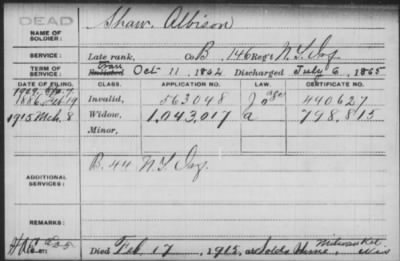 DEAD
NAME OF SOLDIER: Shaw, Albison
SERVICE: Late rank, Co. B, 146 Reg't N.Y. Inf.
TERM OF SERVICE: Enlisted Tran Oct 11, 1862 Discharged July 6, 1865
DATE OF FILING. CLASS. APPLICATION NO. LAW. CERTIFICATE NO.
1886 Invalid, 563048 J age 440627
1915 Mch. 8 Widow, 1,043,017 a 798,815
Minor,
ADDITIONAL SERVICES: B. 44 N.Y. Inf.
REMARKS:
Died Feb. 17, 1915, at Solds Home, Milwaukee Wis